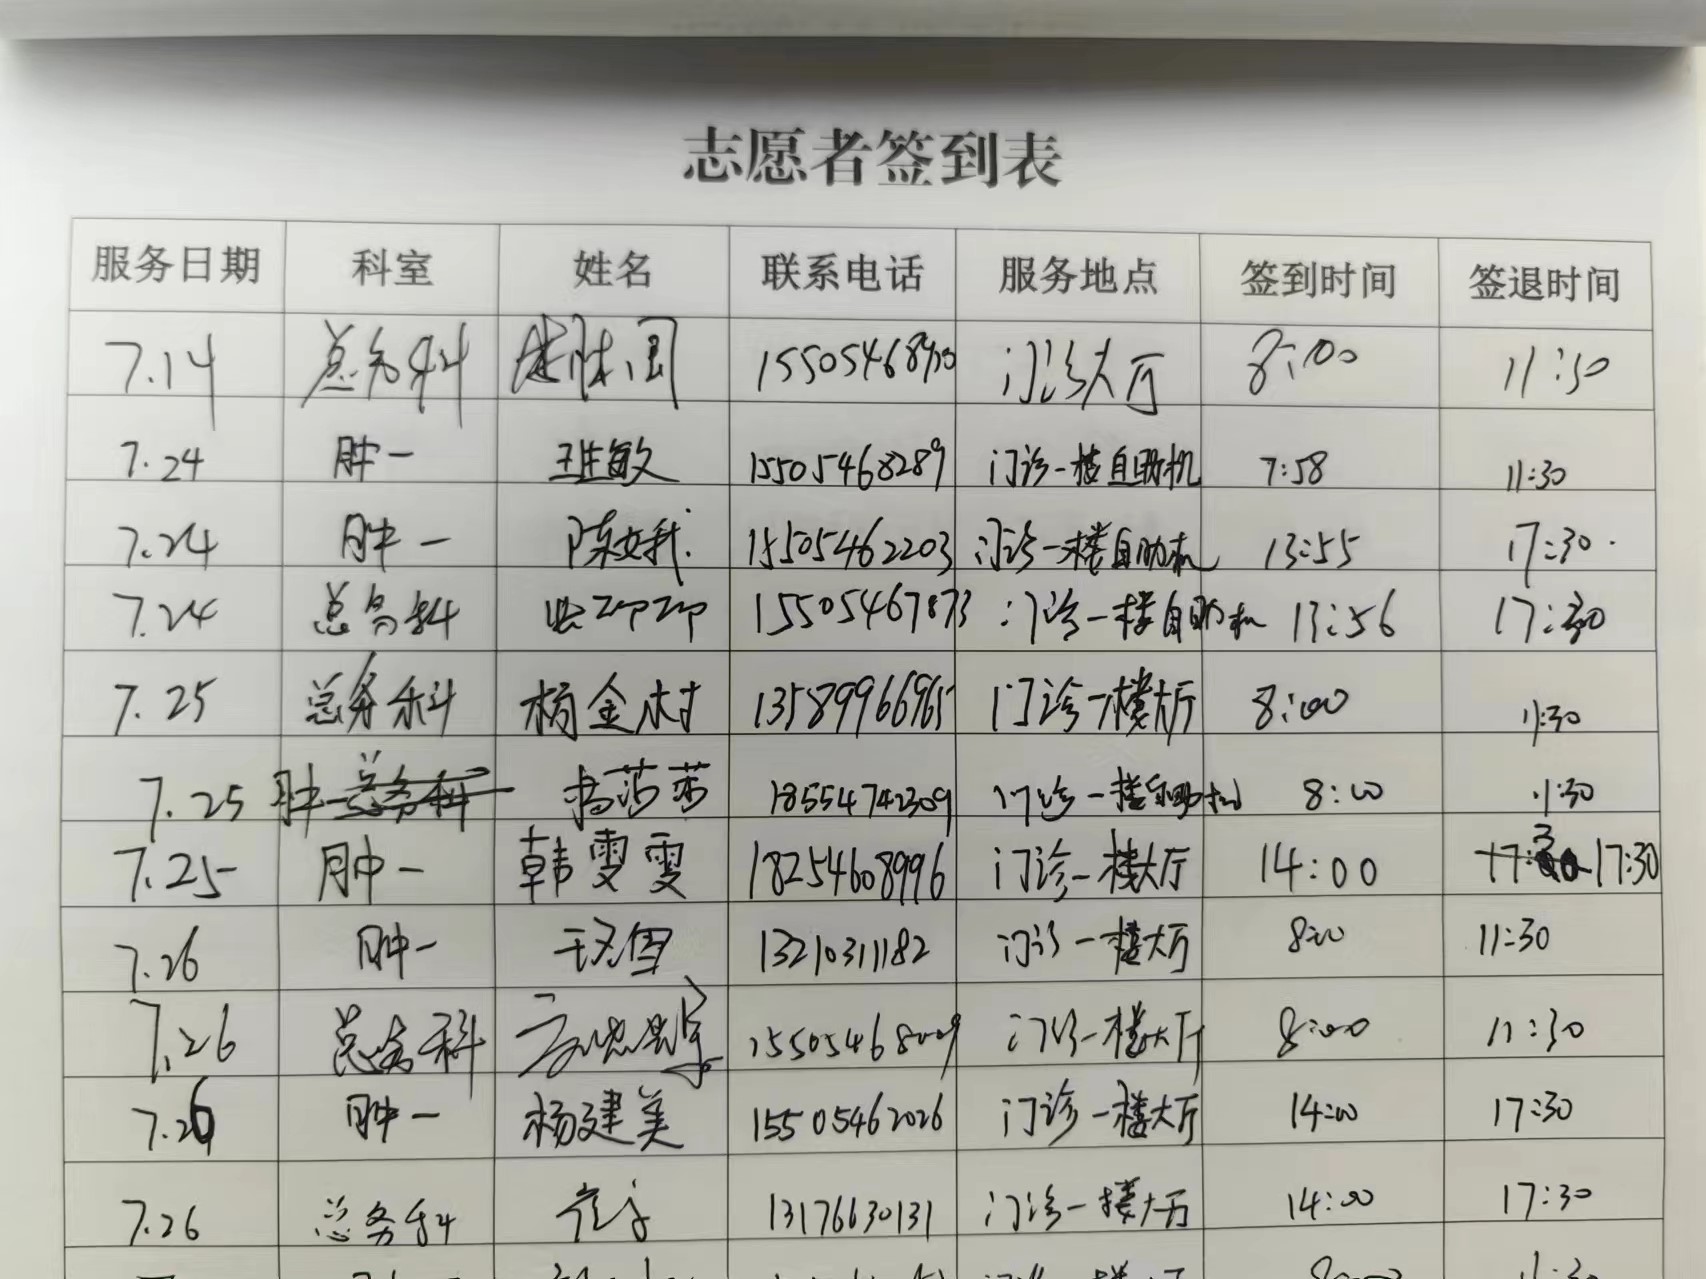 志愿者签到表
服务日期 科室 姓名 联系电话 服务地点 签到时间 签退时间
7.14 总务科 门诊大厅 8:00 11:30
7.24 肿一 敏 15505468289 门诊一楼自助机 7:58 11:30
7.24 肿一 陈 15505462203 门诊一楼自助机 13:55 17:30
7.24 总务科 15505467873 门诊一楼自助机 13:56 17:30
7.25 总务科 杨金村 13589966965 门诊一楼大厅 8:00 11:30
7.25 肿一 莎莎 18554742309 门诊一楼自助机 8:00 11:30
7.25 肿一 韩雯雯 18254608996 门诊一楼大厅 14:00 17:30
7.26 肿一 雪 13210311182 门诊一楼大厅 8:00 11:30
7.26 总务科 门诊一楼大厅 8:00 11:30
7.26 肿一 杨建美 15505462026 门诊一楼大厅 14:00 17:30
7.26 总务科 13176630131 门诊一楼大厅 14:00 17:30